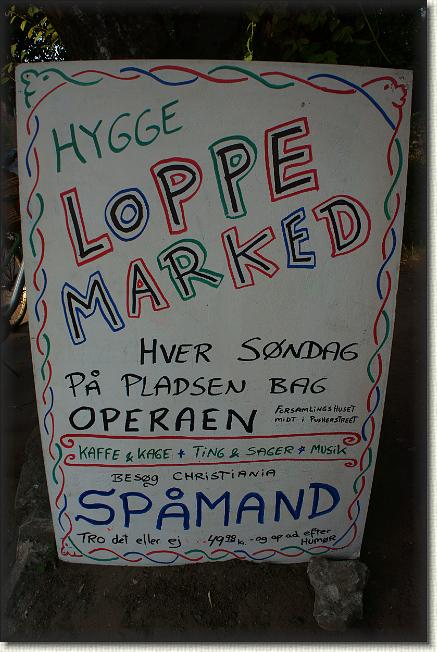 HYGGE
LOPPE
MARKED
HVER SØNDAG
PÅ PLADSEN BAG
OPERAEN FORSAMLINGSHUSET
MIDT I PUSHERSTREET
KAFFE & KAGE + TING & SAGER * MUSIK
BESØG CHRISTIANIA
SPÅMAND
TRO det eller ej 49⁹⁸ k. - og op ad efter
HUMØR